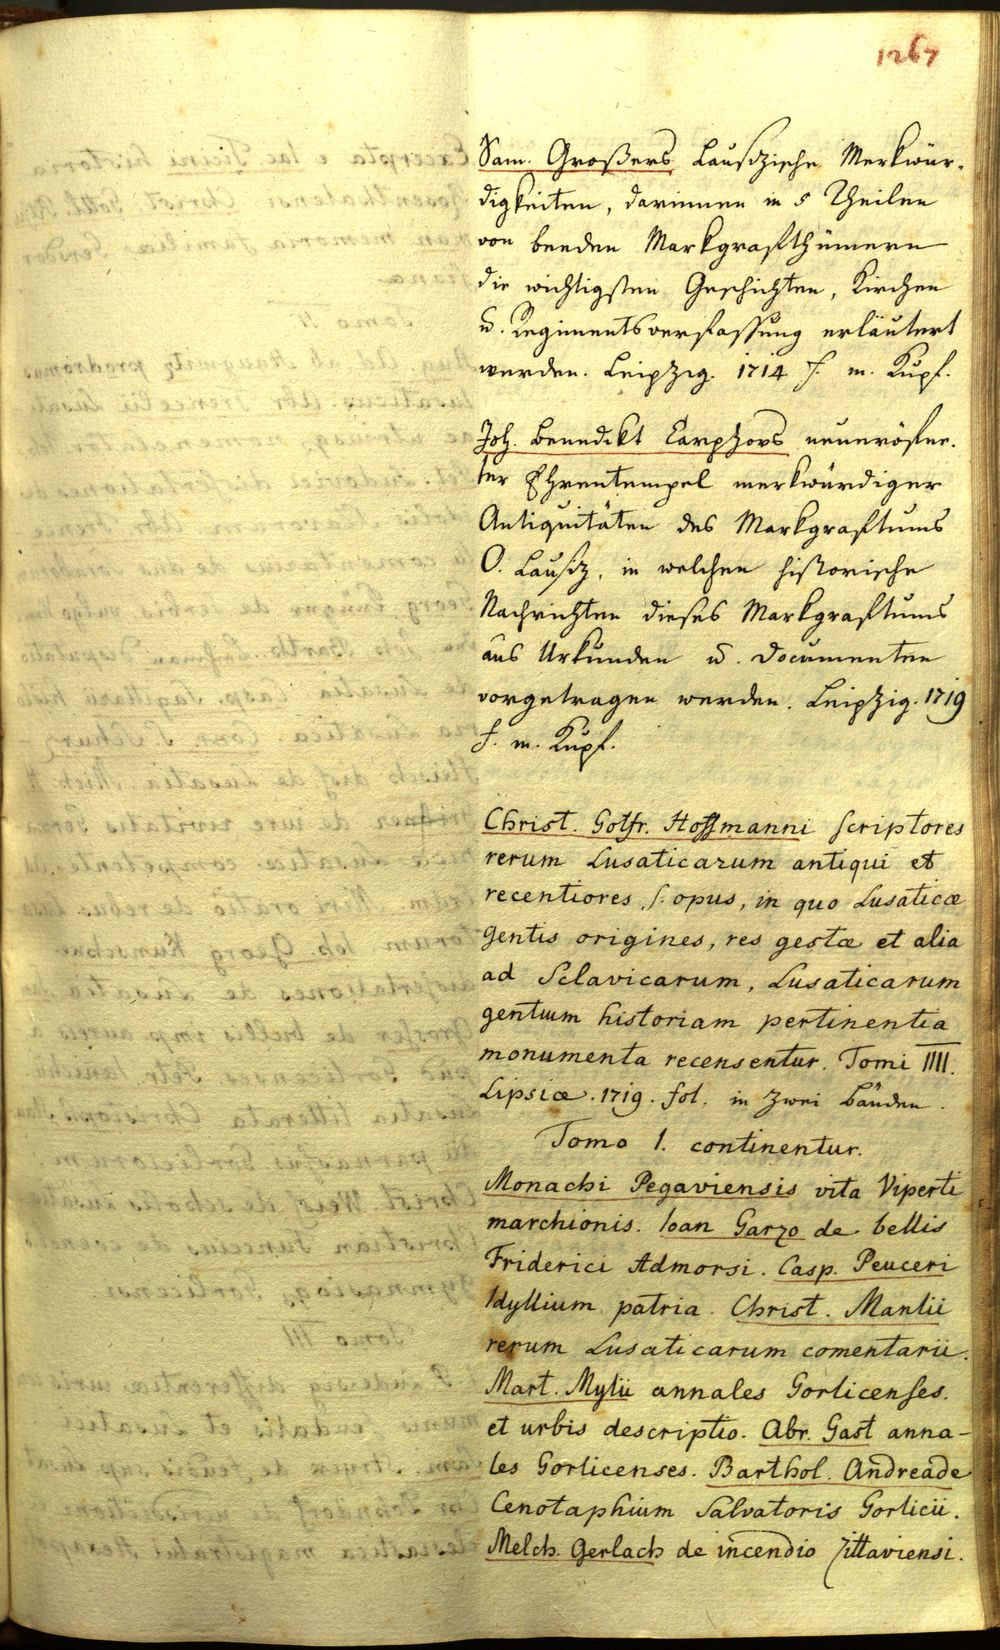 1267
Sam. Großers Lausizische Merkwür-
digkeiten, darinnen in 5 Theilen
von beeden Markgrafthümern
die wichtigsten Geschichten, Kirchen
u. Regimentsverfassung erläutert
werden. Leipzig. 1714 f. m. Kupf.
Joh. Benedikt Carpzovs neueröfne-
ter Ehrentempel merkwürdiger
Antiquitäten des Markgraftums
O. Lausiz, in welchen historische
Nachrichten dieses Markgraftums
aus Urkunden u. Documenten
vorgetragen werden. Leipzig. 1719
f. m. Kupf.
Christ. Gotfr. Hoffmanni scriptores
rerum Lusaticarum antiqui et
recentiores s. opus, in quo Lusaticæ
gentis origines, res gestæ et alia
ad Sclavicarum, Lusaticarum
gentium historiam pertinentia
monumenta recensentur. Tomi IIII.
Lipsiæ. 1719. fol. in zwei Bänden.
Tomo I. continentur.
Monachi Pegaviensis vita Viperti
marchionis. Ioan Garzo de bellis
Friderici Admorsi. Casp. Peuceri
Idyllium patria. Christ. Manlii
rerum Lusaticarum comentarii.
Mart. Mylii annales Gorlicenses.
et urbis descriptio. Abr. Gast anna-
les Gorlicenses. Barthol. Andreade
Cenotaphium Salvatoris Gorlicii.
Melch. Gerlach de incendio Zittaviensi.